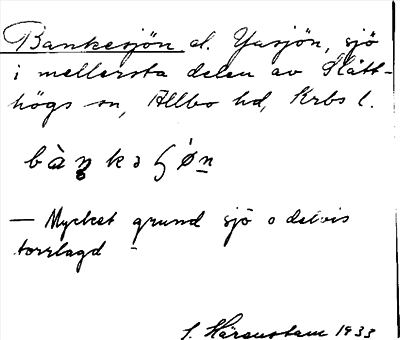 Bankesjön el. Yasjön, sjö
i mellersta delen av Slätt-
högs sn, Allbo hd, Krbs l.
— Mycket grund sjö o delvis
torrlagd -
S. Härenstam 1933